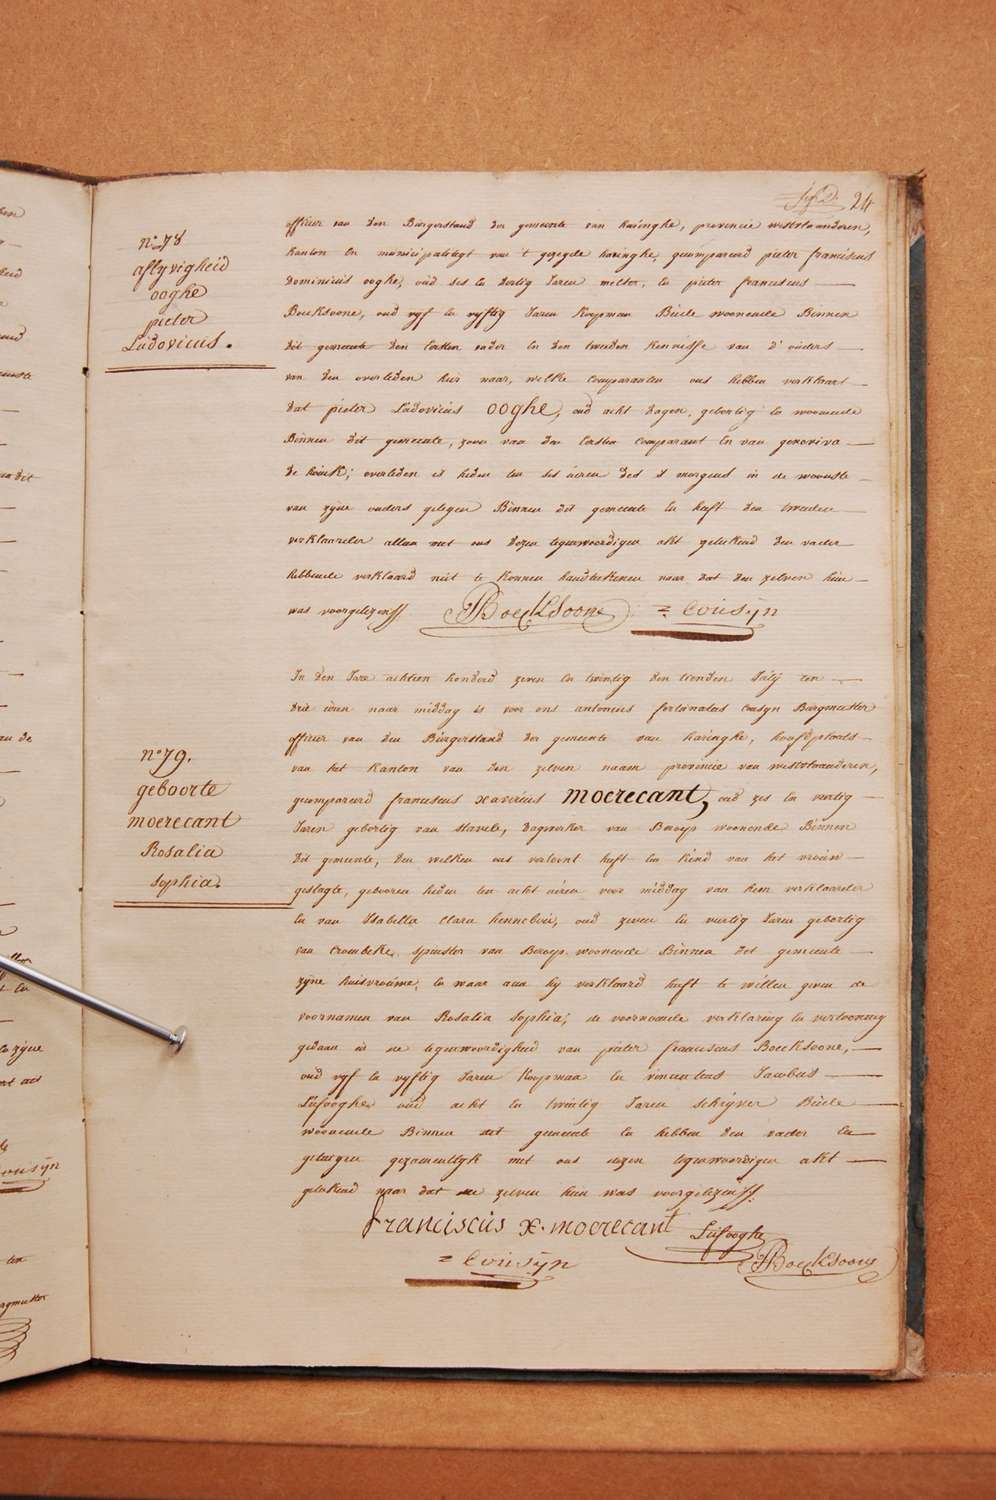 24
n° 78
aflyvigheid
ooghe
pieter
Ludovicus.
officier van den Burgerstand der gemeente van haringhe, provincie westvlaanderen,
kanton en municipaliteyt van 't gezegde haringhe, gecompareerd pieter franciscus
dominicus ooghe, oud ses en dertig Jaren melter, en pieter franciscus
Boecksoone, oud vyf en vyftig Jaren koopman Biede woonende Binnen
dit gemeente den eersten vader en den tweeden kennisse van d' ouders
van den overleden hier naer, welke comparanten ons hebben verklaert
dat pieter Ludovicus ooghe, oud acht dagen, gebortig en woonende
Binnen dit gemeente, zoon van den eersten comparant en van genoviva
de koninck; overleden is heden ten ses uren des s' morgens in de woonste
van zyne ouders gelegen Binnen dit gemeente en heeft den tweeden
verklaerder alleen met ons dezen tegenwoordigen akt geteekend den vader
hebbende verklaard niet te konnen handteekenen naer dat den zelven hun
was voorgelezen //.
Boecksoone = Cousyn
n° 79.
geboorte
moerecant
Rosalia
sophia.
In den Jare achtien honderd zeven en twintig den tienden July ten
drie uren naer middag is voor ons antonius fortunatus Cousyn Burgmeester
officier van den Burgerstand der gemeente van haringhe, hoofdplaats
van het kanton van den zelven naem provincie van westvlaanderen,
gecompareerd franciscus xaverius moerecant, oud zes en vertig
Jaren gebortig van stavele, dagwerker van Beroep woonende Binnen
dit gemeente, den welken ons vertoont heeft een kind van het vrouw
geslagte, gebooren heden ten acht uren voor middag van hem verklaarder
en van Isabella Clara hennebou, oud zeven en vertig Jaren gebortig
van Crombeke, spinster van Beroep woonende Binnen dit gemeente
zyne huisvrouwe, en waer aen hy verklaard heeft te willen geven de
voornamen van Rosalia Sophia; de voornoemde verklaring en vertooning
gedaen in de tegenwoordigheid van pieter franciscus Boecksoone,
oud vyf en vyftig Jaren koopman en vincentius Jacobus
Lufooghe oud acht en twintig Jaren schryver Biede
woonende Binnen dit gemeente en hebben den vader en
getuigen gezamentlyk met ons dezen tegenwoordigen akt
geteekend naer dat de zelven hun was voorgelezen //.
franciscus x. moerecant Lufooghe
= Cousyn Boecksoone